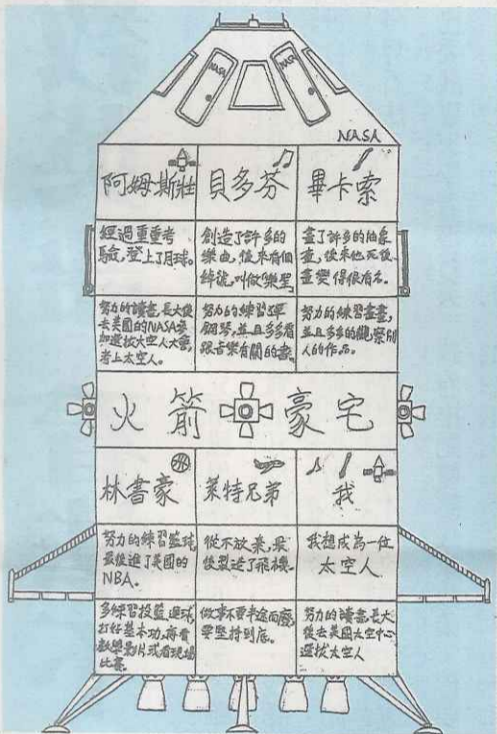 NASA
NASA
NASA
阿姆斯壯
貝多芬
畢卡索
經過重重考
驗,登上了月球。
創造了許多的
樂曲,後來有個
綽號,叫做「樂聖」
畫了許多的抽象
畫,後來他死後
畫變得很有名。
努力的讀書,長大後
去美國的NASA參
加選拔太空人大會,
考上太空人。
努力的練習彈
鋼琴,並且多多看
跟音樂有關的書。
努力的練習畫畫,
並且多多的觀察別
人的作品。
火箭豪宅
林書豪
萊特兄弟
我
努力的練習籃球,
最後進了美國的
NBA。
從不放棄,最
後製造了飛機。
我想成為一位
太空人
多練習投籃、運球,
打好基本功,再看
教學影片或看現場
比賽。
做事不要半途而廢,
要堅持到底。
努力的讀書,長大
後去美國太空中心
選拔太空人